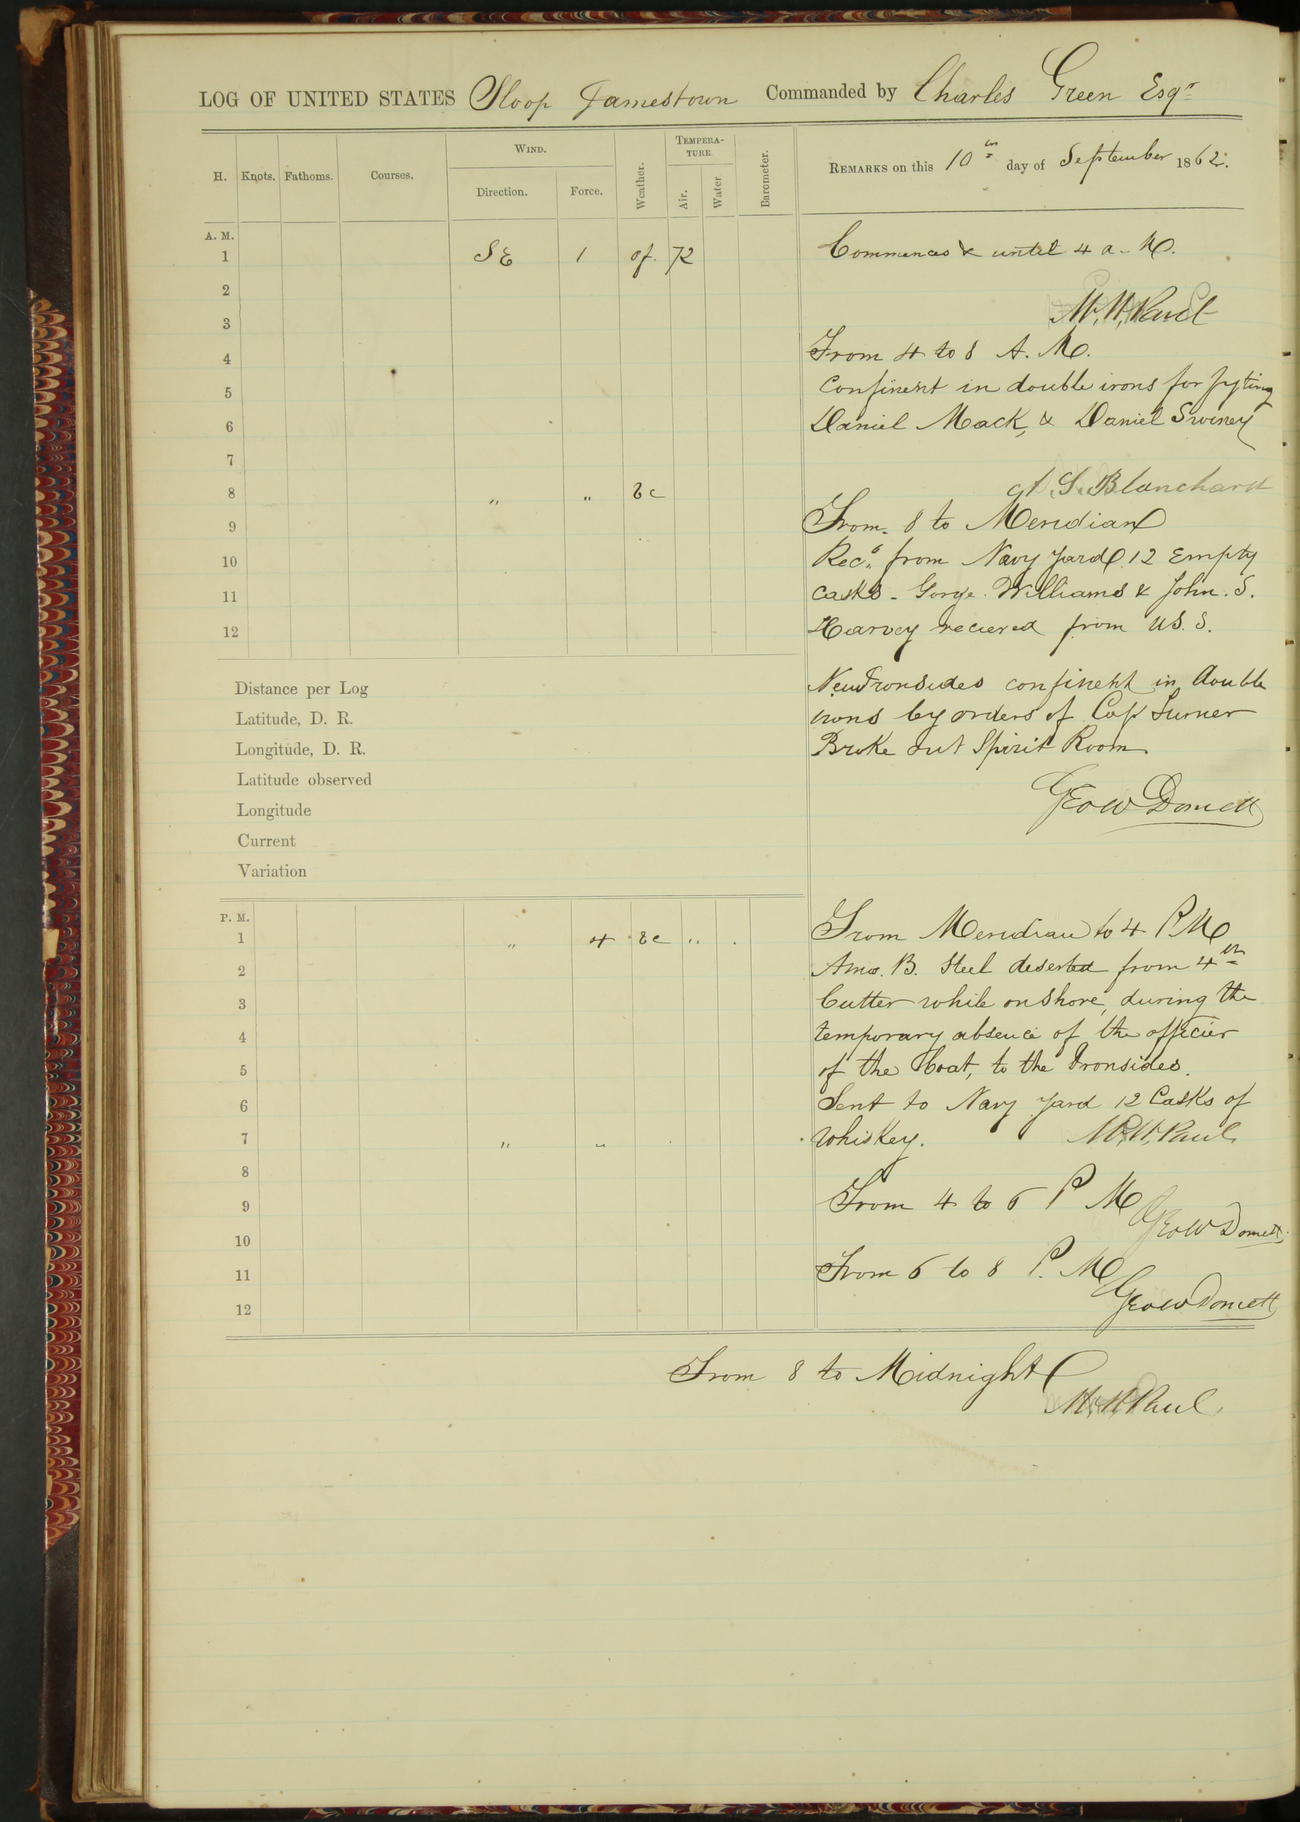 LOG OF UNITED STATES Sloop Jamestown Commanded by Charles Green Esqr
H. Knots. Fathoms. Courses. WIND. Direction. Force. Weather. TEMPERATURE. Air. Water Barometer. REMARKS on this 10th day of September 1862.
A. M.
1 SE 1 of. 72 Commences & until 4 a. M.
2
W. W. Paul
3
From 4 to 8 A. M.
4
Confinent in double irons for fyting
5
Daniel Mack, & Daniel Swiney
6
7
8 " " bc A. S. Blanchard
From 8 to Meridian
9
Rec'd from Navy Yard 12 Empty
10
casks - Gorge. Williams & John. S.
11
Harvey recieved from U.S. S.
12
New Ironsides confinent in double
Distance per Log
irons by orders of Cap Turner
Latitude, D. R.
Broke out Spirit Room
Longitude, D. R.
Latitude observed
Geo W Domett
Longitude
Current
Variation
P. M.
1 " 4 bc " From Meridian to 4 P M
2 B. Steel deserted from 4th
3 Cutter while on shore, during the
4 temporary absence of the officier
5 of the boat, to the Ironsides.
6 Sent to Navy Yard 12 Casks of
7 " " Whiskey. W. W. Paul
8
9 From 4 to 6 P M
Geo W Domett
10
11 From 6 to 8 P. M
Geo W Domett
12
From 8 to Midnight
W. W. Paul